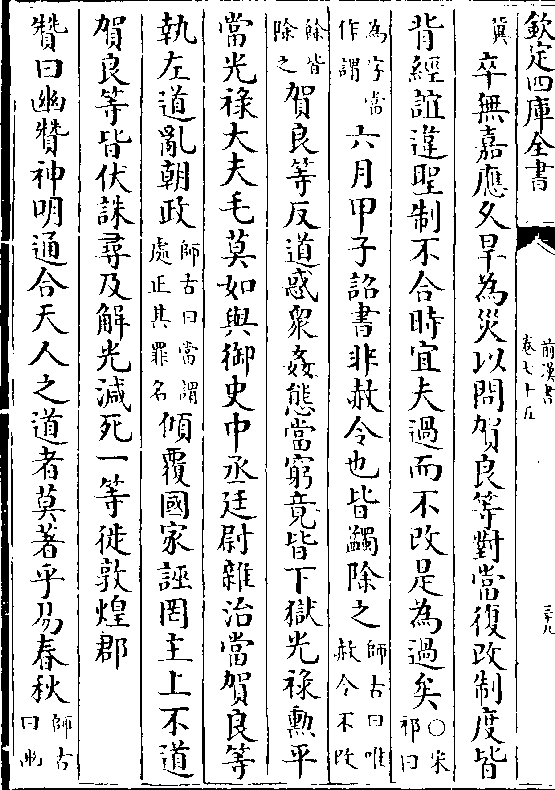 欽定四庫全書
前漢書
卷七十五
三十九
冀
卒無嘉應久旱為災以問賀良等對當復改制度皆
背經誼違聖制不合時宜夫過而不改是為過矣
○宋
祁曰
為字當
作謂
六月甲子詔書非赦令也皆蠲除之
師古曰唯
赦令不改
餘皆
除之
賀良等反道惑衆姦態當窮竟皆下獄光祿勲平
當光祿大夫毛莫如與御史中丞廷尉雜治當賀良等
執左道亂朝政
師古曰當謂
處正其罪名
傾覆國家誣罔主上不道
賀良等皆伏誅尋及解光減死一等徙敦煌郡
贊曰幽贊神明通合天人之道者莫著乎易春秋
師古
曰幽